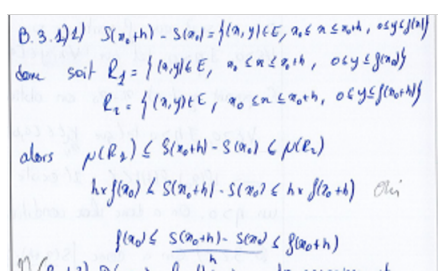 B.3.1) 1) S(x₀+h) - S(x₀) = {(x,y)∈E, x₀ ≤ x ≤ x₀+h, 0≤y≤f(x)}
donc soit R₁ = {(x,y)∈E, x₀ ≤ x ≤ x₀+h, 0≤y≤f(x₀)}
R₂ = {(x,y)∈E, x₀ ≤ x ≤ x₀+h, 0≤y≤f(x₀+h)}
alors μ(R₁) ≤ S(x₀+h) - S(x₀) ≤ μ(R₂)
h×f(x₀) ≤ S(x₀+h) - S(x₀) ≤ h×f(x₀+h) Oui
f(x₀) ≤ S(x₀+h) - S(x₀) / h ≤ f(x₀+h)